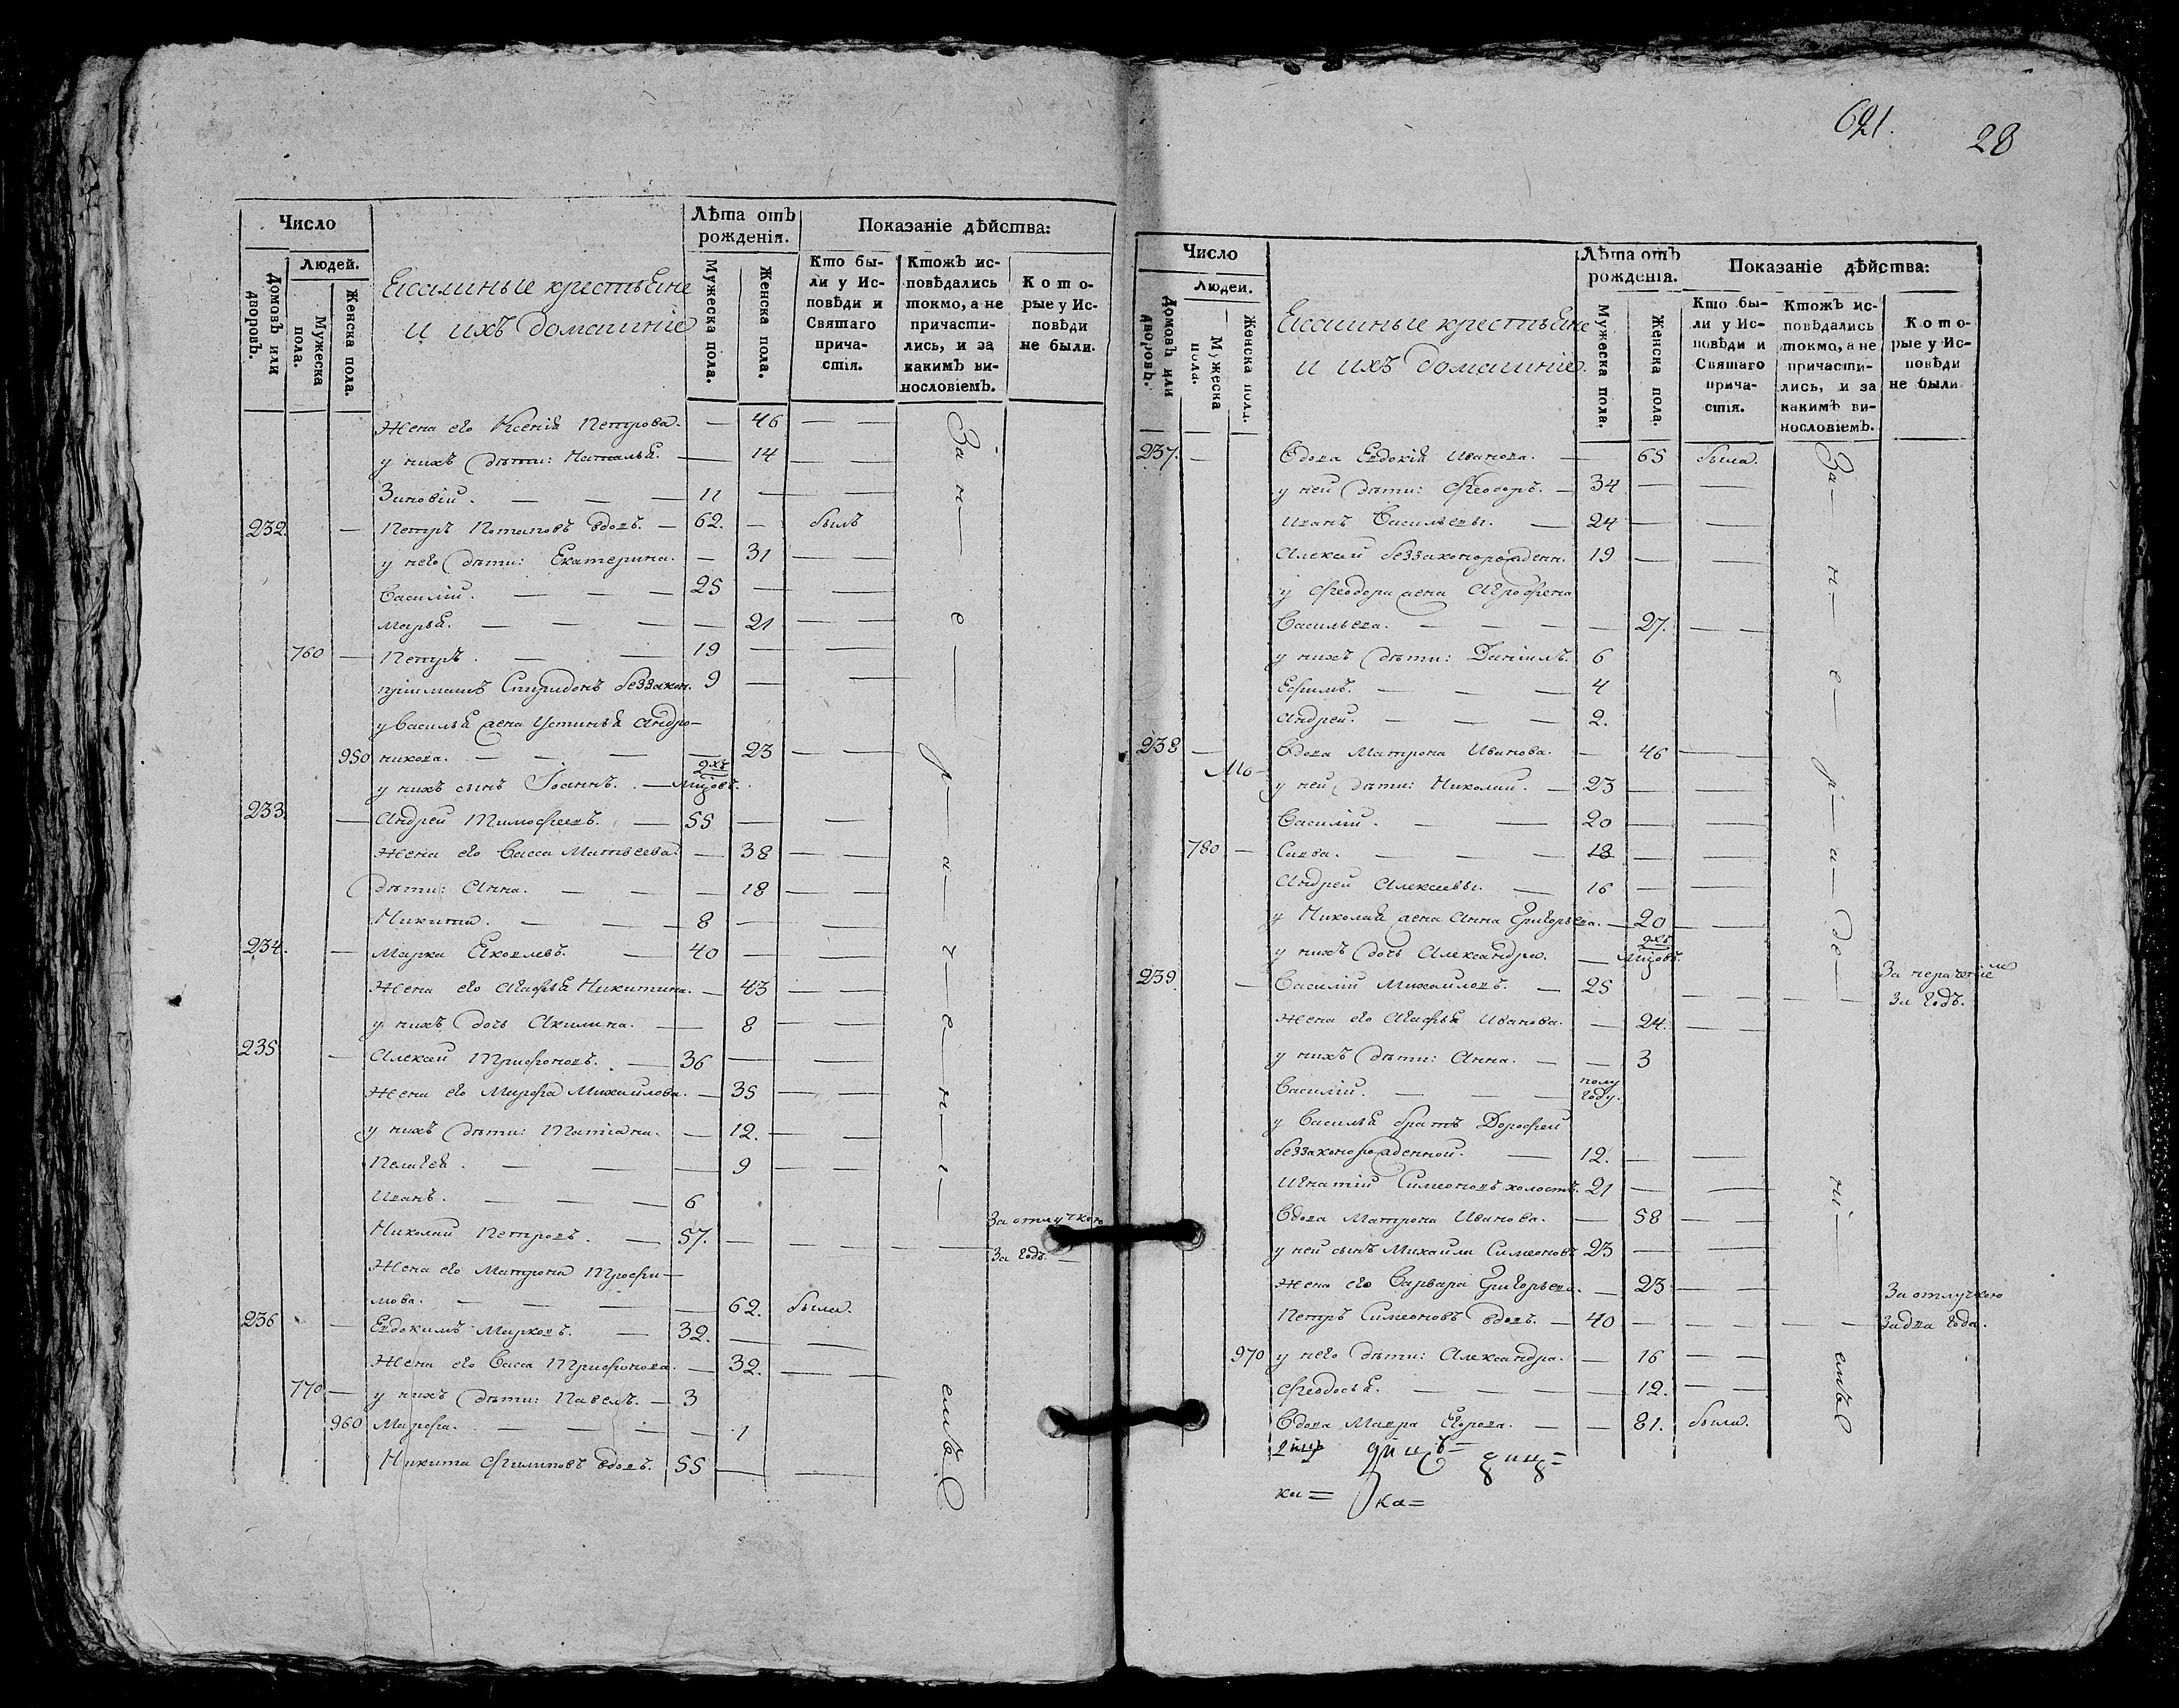 Число
Лѣта отъ рожденія.
Показаніе дѣйства:
Домовъ или дворовъ.
Людей.
Мужеска пола.
Женска пола.
Ясашныя крестьяне
и ихъ домашніе
Мужеска пола.
Женска пола.
Кто были у Исповѣди и Святаго причастія.
Ктожъ исповѣдались токмо, а не причастились, и за какимъ винословіемъ.
Которые у Исповѣди не были.
Жена его Ксенія Петрова. — 46 — —
у нихъ дѣти: Наталья. — 14 — —
Зиновій. — — — 11 — —
232. — Петръ Потаповъ вдовъ. — 62. — былъ
у него дѣти: Екатерина. — 31 — —
Василій. — — — 25 — —
Марья. — — — — 21 — —
760 — Петръ. — — 19 — —
пріимашъ Спиридонъ беззакон. 9 — —
у Василья жена Устинья Андро-
950 никова. — — — — 23 — —
у нихъ сынъ Іоаннъ. — 2хъ мцовъ.
233. — Андрей Тимофеевъ. — 55 — —
Жена его Васса Матвеева. — 38 — —
дѣти: Анна. — — — 18 — —
Никита. — — — 8 — —
234. — Марка Яковлевъ. — 40 — —
Жена его Агафья Никитина. — 43 — —
у нихъ дочь Акилина. — — 8 — —
235 — Алексей Трифоновъ. — 36 — —
Жена его Марфа Михайлова. — 35 — —
у нихъ дѣти: Татіана. — 12. — —
Пелагея. — — — 9 — —
Иванъ. — — — 6
Николай Петровъ. — 57. — — — — За отлучкою
За годъ. —
Жена его Матрона Трофи-
мова. — — — — 62. была.
236 — Евдокимъ Марковъ. — 32. — —
Жена его Васса Трифонова. — 32. — —
770 — у нихъ дѣти: Павелъ. — 3
960 Марфа. — — — — 1
Никита Филиповъ вдовъ. 55 — —
За-н-е-р-а-ч-е-н-і-емъ
621.
28
Число
Лѣта отъ рожденія.
Показаніе дѣйства:
Домовъ или дворовъ.
Людей.
Мужеска пола.
Женска пола.
Ясашныя крестьяне
и ихъ домашніе.
Мужеска пола.
Женска пола.
Кто были у Исповѣди и Святаго причастія.
Ктожъ исповѣдались токмо, а не причастились, и за какимъ винословіемъ.
Которые у Исповѣди не были
237. — Вдова Евдокія Иванова. — 65 была.
у ней дѣти: Феодоръ. — 34 — —
Иванъ Васильевы. — 24 — —
Алексей беззаконорожденн. 19 — —
у Феодора жена Агрофена
Васильева. — — — — 27. — —
у нихъ дѣти: Даніилъ. 6
Ефимъ. — — — 4
Андрей. — — — 2.
238 — Вдова Матрона Иванова. — 46 — —
у ней дѣти: Николай. — 23 — —
Василій. — — 20 — —
780 — Савва. — — — 18 — —
Андрей Алексеевы. — 16 — —
у Николая жена Анна Григорьева. — 20 — —
у нихъ дочь Александра. — 2хъ мцовъ.
239. — Василій Михайловъ. — 25 — — — — За нераченіемъ
За годъ.
Жена его Агафья Иванова. — 24. — —
у нихъ дѣти: Анна. — — 3
Василій. — — — полу году.
у Василья братъ Дорофей
беззаконорожденной. — 12. — —
Игнатій Симеоновъ холостъ. 21 — —
Вдова Матрона Иванова. — 58 — —
у ней сынъ Михайла Симеоновъ 23 — —
Жена его Варвара Григорьева. — 23 — —
Петръ Симеоновъ вдовъ. — 40 — — — — За отлучкою
За два года.
970 у него дѣти: Александра. — 16 — —
Феодосья. — — — — 12. — —
Вдова Мавра Егорова. — — 81. была.
ка = ка =